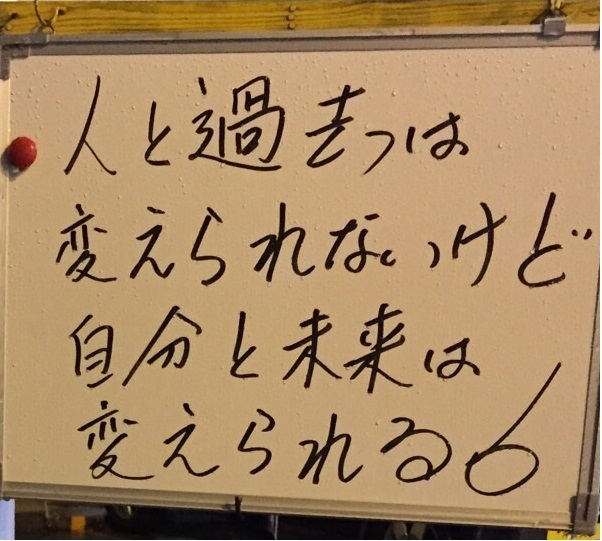 人と過去は
変えられないけど
自分と未来は
変えられる